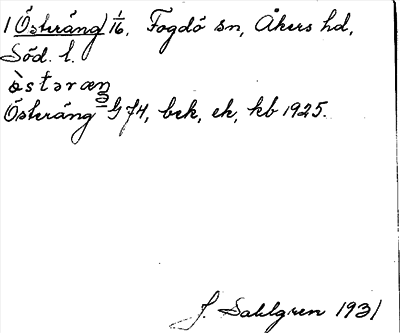 1 Österäng 1/16, Fogdö sn, Åkers hd,
Söd. l.
östəræŋ
Österäng G 74, bek, ek, kb 1925.
J. Sahlgren 1931